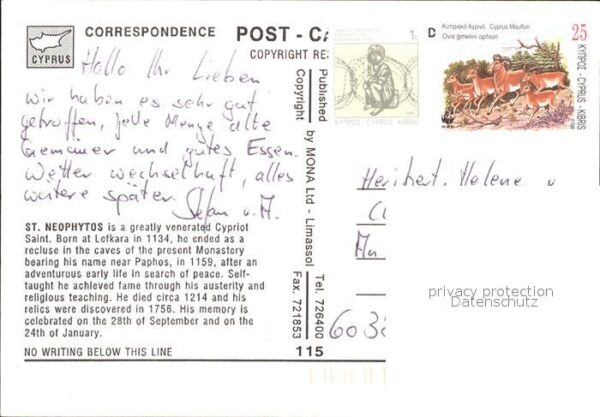 CYPRUS
CORRESPONDENCE
POST - CA
COPYRIGHT RE
Hallo Ihr Lieben
wir haben es sehr gut
getroffen, jede Menge alte
Gemäuer und gutes Essen.
Wetter wechselhaft, alles
weitere später.
Stefan u. M.
ST. NEOPHYTOS is a greatly venerated Cypriot
Saint. Born at Lefkara in 1134, he ended as a
recluse in the caves of the present Monastery
bearing his name near Paphos, in 1159, after an
adventurous early life in search of peace. Self-
taught he achieved fame through his austerity and
religious teaching. He died circa 1214 and his
relics were discovered in 1756. His memory is
celebrated on the 28th of September and on the
24th of January.
NO WRITING BELOW THIS LINE
115
Published by MONA Ltd - Limassol Tel. 726400
Copyright Fax. 721853
1c
ΚΥΠΡΟΣ - CYPRUS KIBRIS
D
Κυπριακό Αγρινό - Cyprus Mouflon
Ovis gmelini ophion
25
ΚΥΠΡΟΣ - CYPRUS - KIBRIS
WWF
Heribert, Helene u
603
privacy protection
Datenschutz